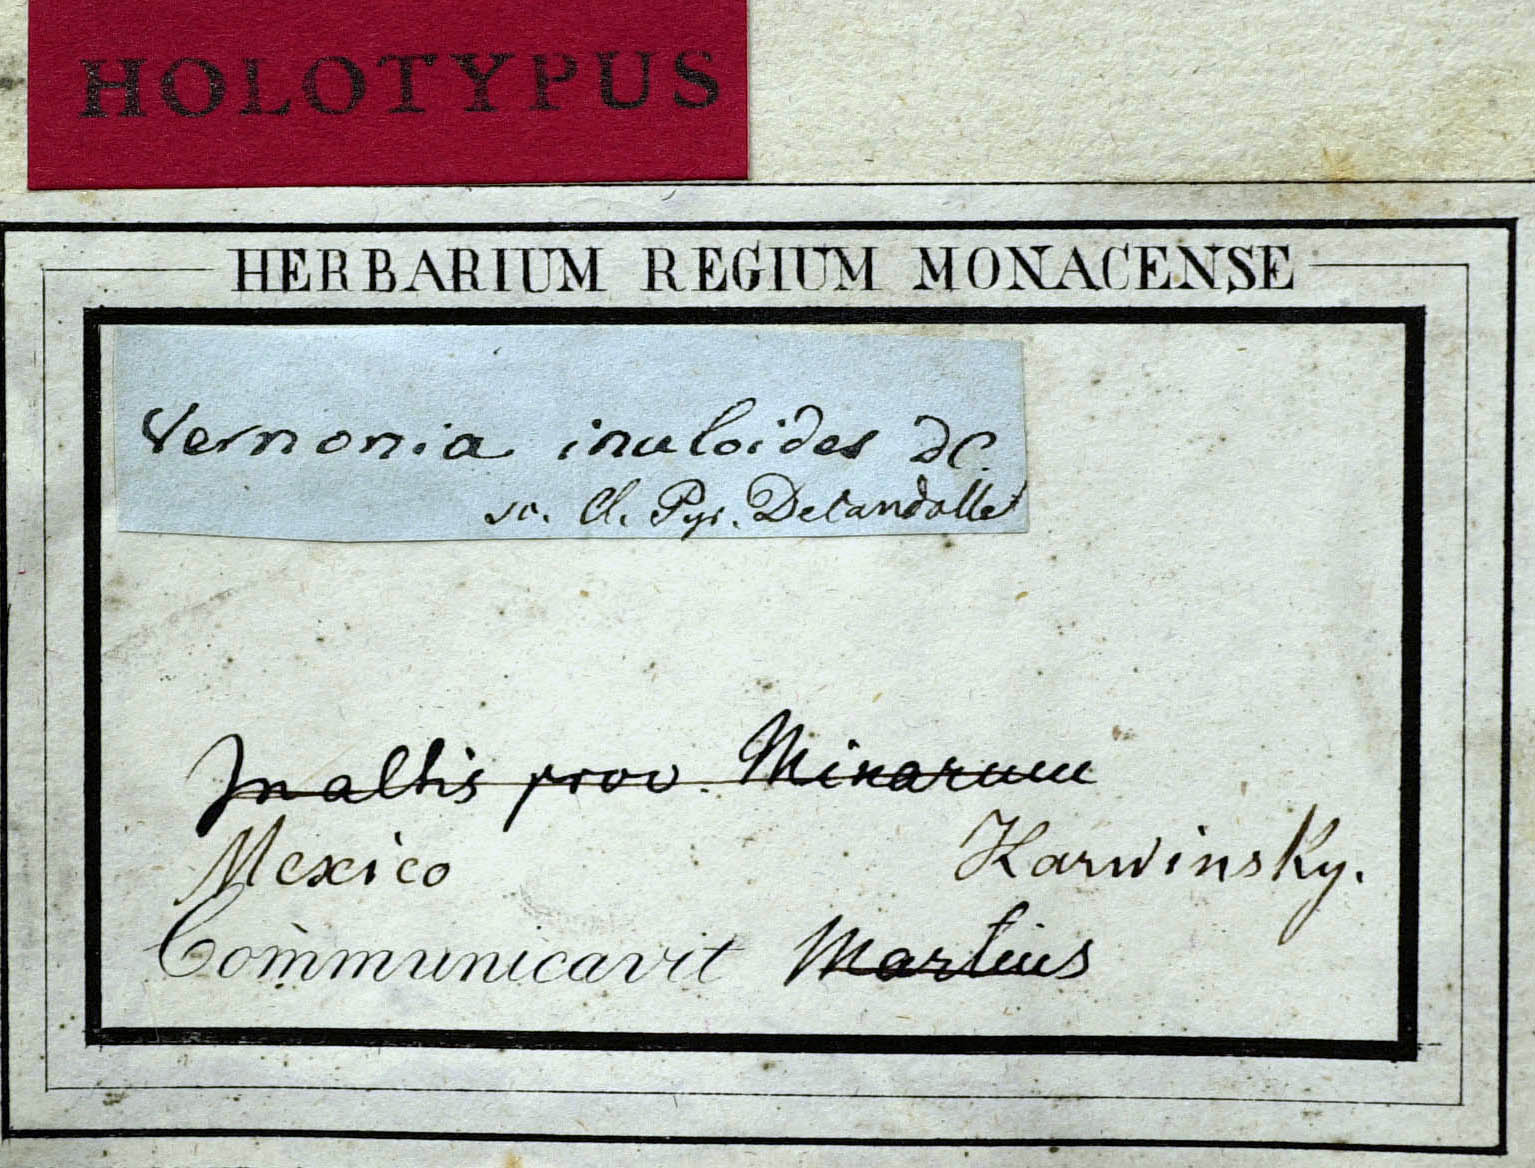 HOLOTYPUS
HERBARIUM REGIUM MONACENSE
Vernonia inuloides DC.
sc. Cl. Pyr. Decandolle
In altis prov. Minarum
Mexico Karwinsky.
Communicavit Martius